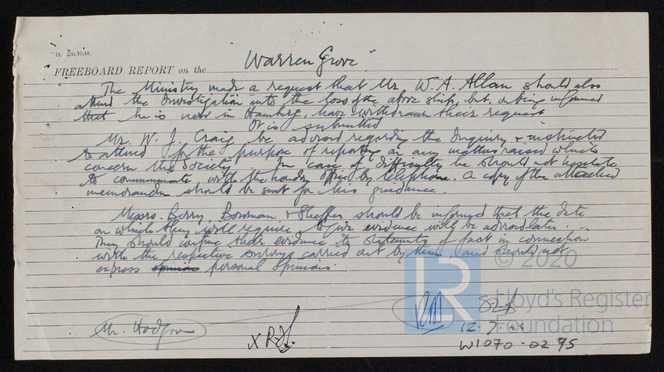 FREEBOARD REPORT on the "Warren Grove"
The Ministry made a request that Mr. W. A. Allan should also
attend the investigation into the loss of the above ship, but, on being informed
that he is now in Hamburg, have withdrawn their request.
It is submitted
Mr. W. J. Craig be advised regarding the Inquiry & instructed
to attend for the purpose of reporting on any matters raised which
concern the Society. In case of difficulty he should not hesitate
to communicate with the London Office by telephone. A copy of the attached
memorandum should be sent for his guidance.
Messrs. Berry, Bowman & should be informed that the date
on which they will require to give evidence will be advised later.
They should confine their evidence to statements of fact in connection
with the respective surveys carried out by them and should not
express opinions personal opinions.
LR © 2020
Lloyd's Register
Foundation
Mr. Hodgson
12.7.
W1070-0295